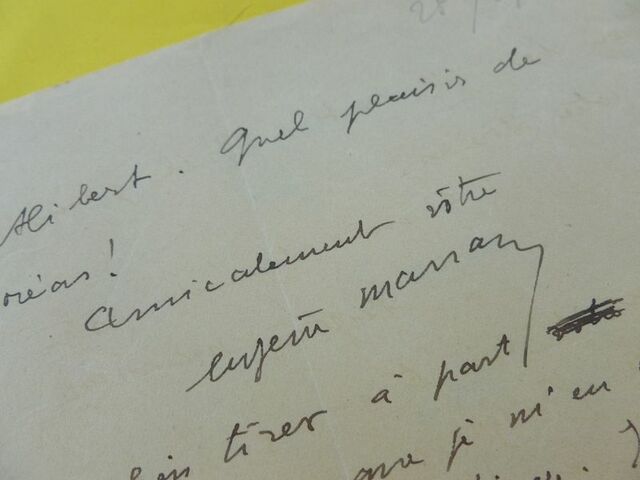 Alibert. Quel plaisir de
réas!
amicalement vôtre
eugène marsan
tirer à part
que je m'en